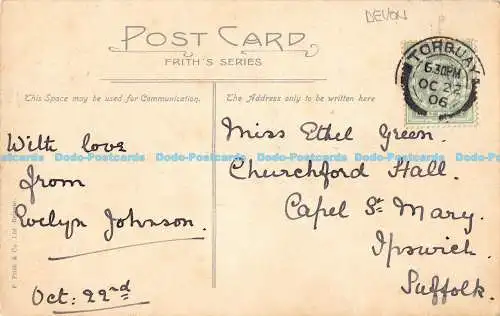 DEVON
POST CARD
FRITH'S SERIES
TORQUAY
6.30PM
OC 22
06
This Space may be used for Communication.
The Address only to be written here
With love
from
Evelyn Johnson.
Oct: 22nd
Miss Ethel Green.
Churchford Hall.
Capel St Mary.
Ipswich.
Suffolk.
Dodo-Postcards Dodo-Postcards Dodo-Postcards Dodo-Postcards Dodo-Postcards
F. Frith & Co., Ltd. Reigate.